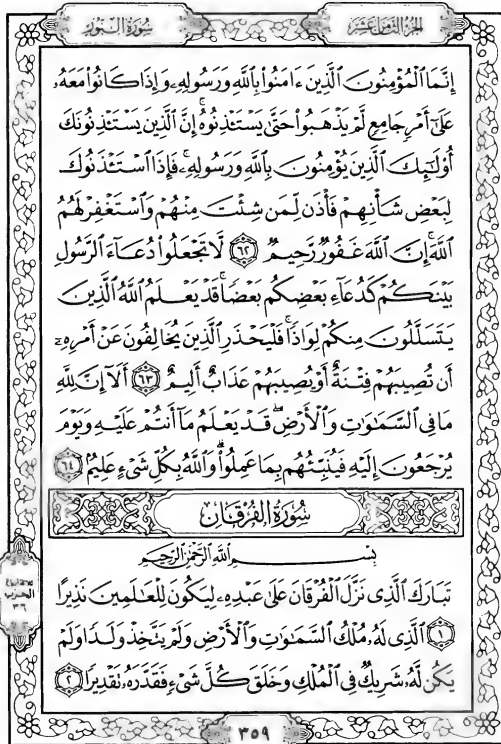 الجزء الثامن عشر
سورة النور
إِنَّمَا ٱلْمُؤْمِنُونَ ٱلَّذِينَ ءَامَنُوا۟ بِٱللَّهِ وَرَسُولِهِۦ وَإِذَا كَانُوا۟ مَعَهُۥ
عَلَىٰٓ أَمْرٍ جَامِعٍ لَّمْ يَذْهَبُوا۟ حَتَّىٰ يَسْتَـْٔذِنُوهُ ۚ إِنَّ ٱلَّذِينَ يَسْتَـْٔذِنُونَكَ
أُو۟لَـٰٓئِكَ ٱلَّذِينَ يُؤْمِنُونَ بِٱللَّهِ وَرَسُولِهِۦ ۚ فَإِذَا ٱسْتَـْٔذَنُوكَ
لِبَعْضِ شَأْنِهِمْ فَأْذَن لِّمَن شِئْتَ مِنْهُمْ وَٱسْتَغْفِرْ لَهُمُ
ٱللَّهَ ۚ إِنَّ ٱللَّهَ غَفُورٌ رَّحِيمٌ ٦٢ لَّا تَجْعَلُوا۟ دُعَآءَ ٱلرَّسُولِ
بَيْنَكُمْ كَدُعَآءِ بَعْضِكُم بَعْضًا ۚ قَدْ يَعْلَمُ ٱللَّهُ ٱلَّذِينَ
يَتَسَلَّلُونَ مِنكُمْ لِوَاذًا ۚ فَلْيَحْذَرِ ٱلَّذِينَ يُخَالِفُونَ عَنْ أَمْرِهِۦٓ
أَن تُصِيبَهُمْ فِتْنَةٌ أَوْ يُصِيبَهُمْ عَذَابٌ أَلِيمٌ ٦٣ أَلَآ إِنَّ لِلَّهِ
مَا فِى ٱلسَّمَـٰوَٰتِ وَٱلْأَرْضِ ۖ قَدْ يَعْلَمُ مَآ أَنتُمْ عَلَيْهِ وَيَوْمَ
يُرْجَعُونَ إِلَيْهِ فَيُنَبِّئُهُم بِمَا عَمِلُوا۟ ۗ وَٱللَّهُ بِكُلِّ شَىْءٍ عَلِيمٌۢ ٦٤
سُورَةُ الْفُرْقَانِ
بِسْمِ ٱللَّهِ ٱلرَّحْمَـٰنِ ٱلرَّحِيمِ
تَبَارَكَ ٱلَّذِى نَزَّلَ ٱلْفُرْقَانَ عَلَىٰ عَبْدِهِۦ لِيَكُونَ لِلْعَـٰلَمِينَ نَذِيرًا
١ ٱلَّذِى لَهُۥ مُلْكُ ٱلسَّمَـٰوَٰتِ وَٱلْأَرْضِ وَلَمْ يَتَّخِذْ وَلَدًا وَلَمْ
يَكُن لَّهُۥ شَرِيكٌ فِى ٱلْمُلْكِ وَخَلَقَ كُلَّ شَىْءٍ فَقَدَّرَهُۥ تَقْدِيرًا ٢
الحزب
٣٦
٣٥٩